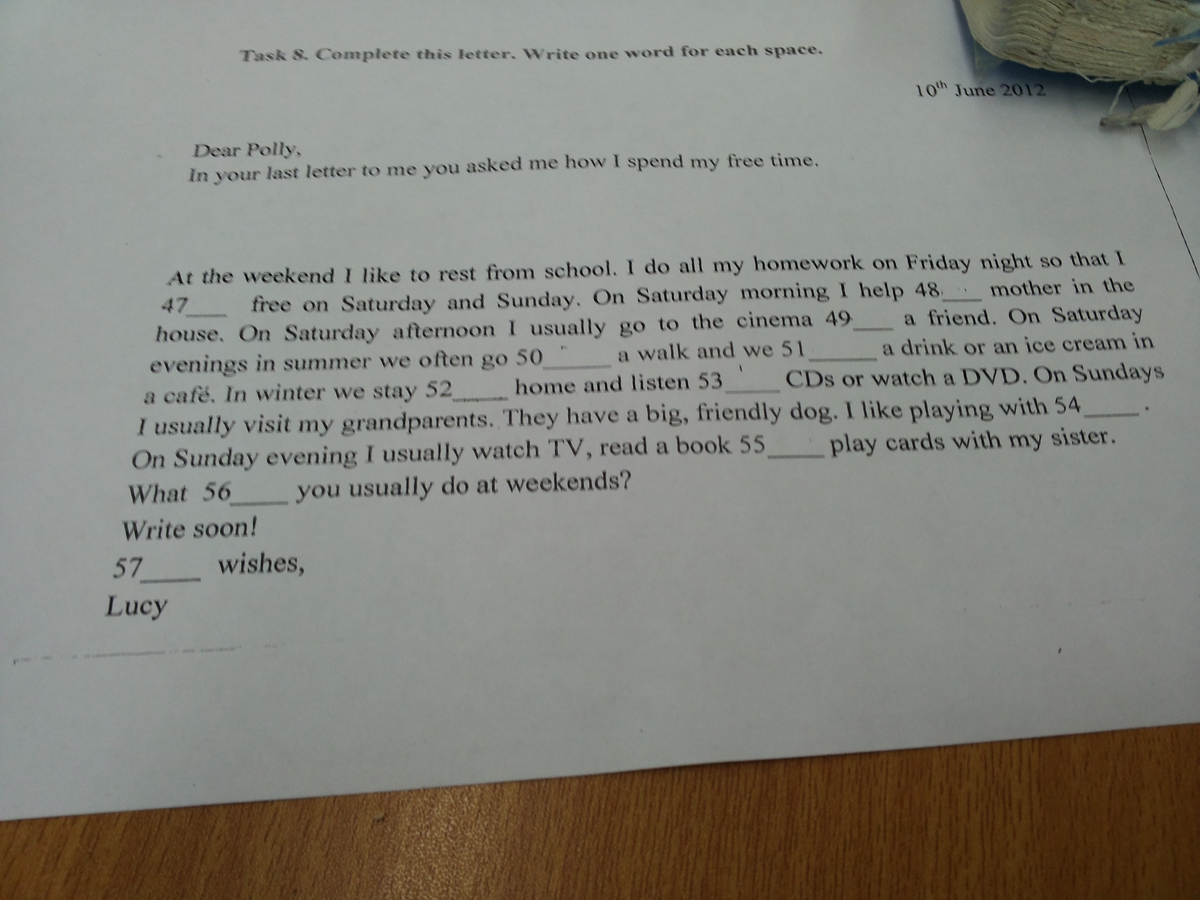 Task 8. Complete this letter. Write one word for each space.
10th June 2012
Dear Polly,
In your last letter to me you asked me how I spend my free time.
At the weekend I like to rest from school. I do all my homework on Friday night so that I
47____ free on Saturday and Sunday. On Saturday morning I help 48____ mother in the
house. On Saturday afternoon I usually go to the cinema 49____ a friend. On Saturday
evenings in summer we often go 50______ a walk and we 51______ a drink or an ice cream in
a café. In winter we stay 52_____ home and listen 53_____ CDs or watch a DVD. On Sundays
I usually visit my grandparents. They have a big, friendly dog. I like playing with 54_____ .
On Sunday evening I usually watch TV, read a book 55_____ play cards with my sister.
What 56_____ you usually do at weekends?
Write soon!
57_____ wishes,
Lucy